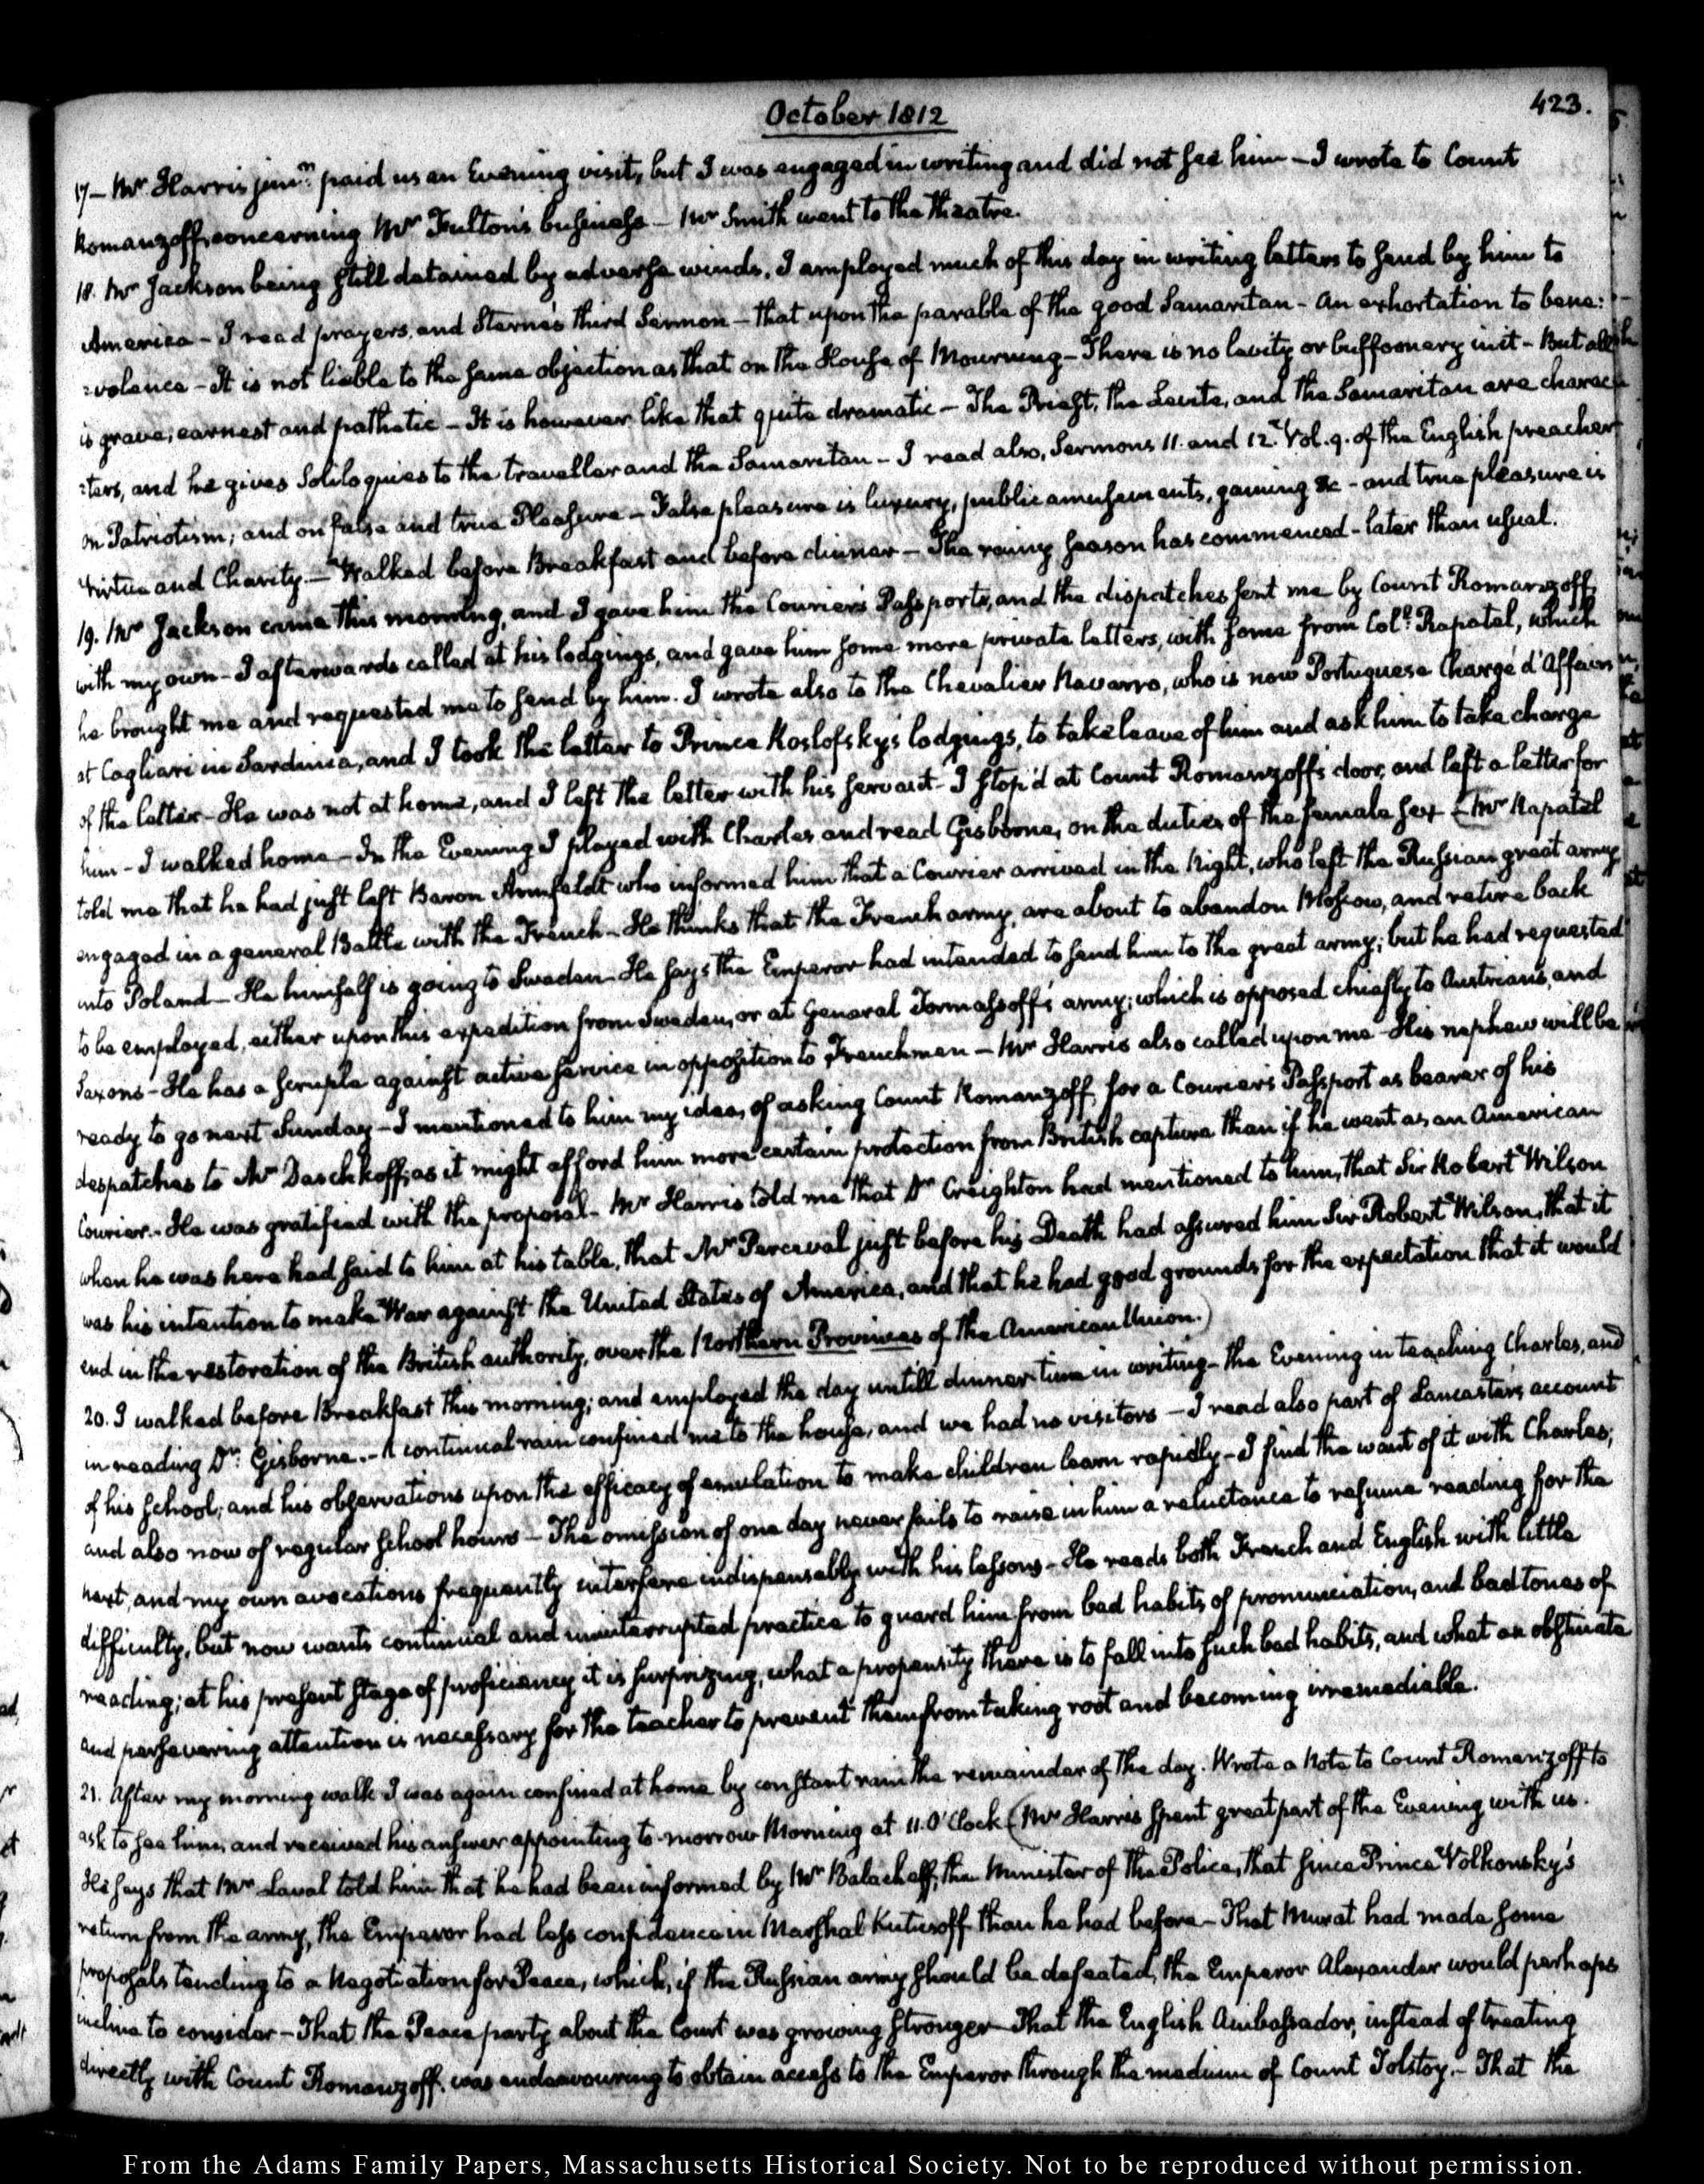 October 1812
423.
17 — Mr Harris junr. paid us an Evening visit, but I was engaged in writing and did not see him — I wrote to Count
Romanzoff, concerning Mr Fulton's business — Mr Smith went to the theatre.
18. Mr Jackson being still detained by adverse winds, I employed much of this day in writing letters to send by him to
America — I read prayers, and Sterne's third Sermon — that upon the parable of the good Samaritan — An exhortation to bene:
:volence — It is not liable to the same objection as that on the House of Mourning — There is no levity or buffoonery in it — But all
is grave, earnest and pathetic — It is however like that quite dramatic — The Priest, the Levite, and the Samaritan are charac:
:ters, and he gives Soliloquies to the traveller and the Samaritan — I read also, Sermons 11. and 12. Vol. 9. of the English preacher
on Patriotism; and on false and true Pleasure — False pleasure is luxury, public amusements, gaming &c — and true pleasure is
Virtue and Charity. — Walked before Breakfast and before dinner — The rainy season has commenced — later than usual.
19. Mr Jackson came this morning, and I gave him the Courier's Passports, and the dispatches sent me by Count Romanzoff,
with my own — I afterwards called at his lodgings, and gave him some more private letters, with some from Coll. Rapatel, which
he brought me and requested me to send by him. I wrote also to the Chevalier Navarro, who is now Portuguese Chargé d'Affaires
at Cagliari in Sardinia, and I took the letter to Prince Koslofsky's lodgings, to take leave of him and ask him to take charge
of the letter — He was not at home, and I left the letter with his servant — I stop'd at Count Romanzoff's door, and left a letter for
him — I walked home — In the Evening I played with Charles and read Gisborne, on the duties of the female sex — (Mr Rapatel
told me that he had just left Baron Armfeldt who informed him that a Courier arrived in the Night, who left the Russian great army,
engaged in a general Battle with the French — He thinks that the French army, are about to abandon Moscow, and retire back
into Poland — He himself is going to Sweden — He says the Emperor had intended to send him to the great army; but he had requested
to be employed, either upon this expedition from Sweden, or at General Tormassoff's army; which is opposed chiefly to Austrians, and
Saxons — He has a scruple against active service in opposition to Frenchmen — Mr Harris also called upon me — His nephew will be
ready to go next Sunday — I mentioned to him my idea, of asking Count Romanzoff, for a Courier's Passport as bearer of his
despatches to Mr Daschkoff, as it might afford him more certain protection from British capture than if he went as an American
Courier. — He was gratified with the proposal — Mr Harris told me that Dr Creighton had mentioned to him, that Sir Robert Wilson
when he was here had said to him at his table, that Mr Perceval just before his Death had assured him Sir Robert Wilson, that it
was his intention to make War against the United States of America, and that he had good grounds for the expectation that it would
end in the restoration of the British authority, over the Northern Provinces of the American Union.)
20. I walked before Breakfast this morning; and employed the day untill dinner time in writing — the Evening in teaching Charles, and
in reading Dr. Gisborne. — A continual rain confined me to the house, and we had no visitors — I read also part of Lancaster's account
of his school; and his observations upon the efficacy of emulation to make children learn rapidly — I find the want of it with Charles;
and also now of regular school hours — The omission of one day never fails to raise in him a reluctance to resume reading for the
next, and my own avocations frequently interfere indispensably with his lessons — He reads both French and English with little
difficulty, but now wants continual and uninterrupted practice to guard him from bad habits of pronunciation, and bad tones of
reading; at his present stage of proficiency it is surprizing, what a propensity there is to fall into such bad habits, and what an obstinate
and persevering attention is necessary for the teacher to prevent them from taking root and becoming irremediable.
21. After my morning walk I was again confined at home by constant rain the remainder of the day. Wrote a Note to Count Romanzoff to
ask to see him, and received his answer appointing to-morrow Morning at 11. O'Clock (Mr Harris spent great part of the Evening with us.
He says that Mr Laval told him that he had been informed by Mr Balacheff, the Minister of the Police, that since Prince Volkonsky's
return from the army, the Emperor had less confidence in Marshal Kutusoff than he had before — That Murat had made some
proposals tending to a Negotiation for Peace, which, if the Russian army should be defeated, the Emperor Alexander would perhaps
incline to consider — That the Peace party about the Court was growing stronger — That the English Ambassador, instead of treating
directly with Count Romanzoff, was endeavouring to obtain access to the Emperor through the medium of Count Tolstoy. — That the
From the Adams Family Papers, Massachusetts Historical Society. Not to be reproduced without permission.